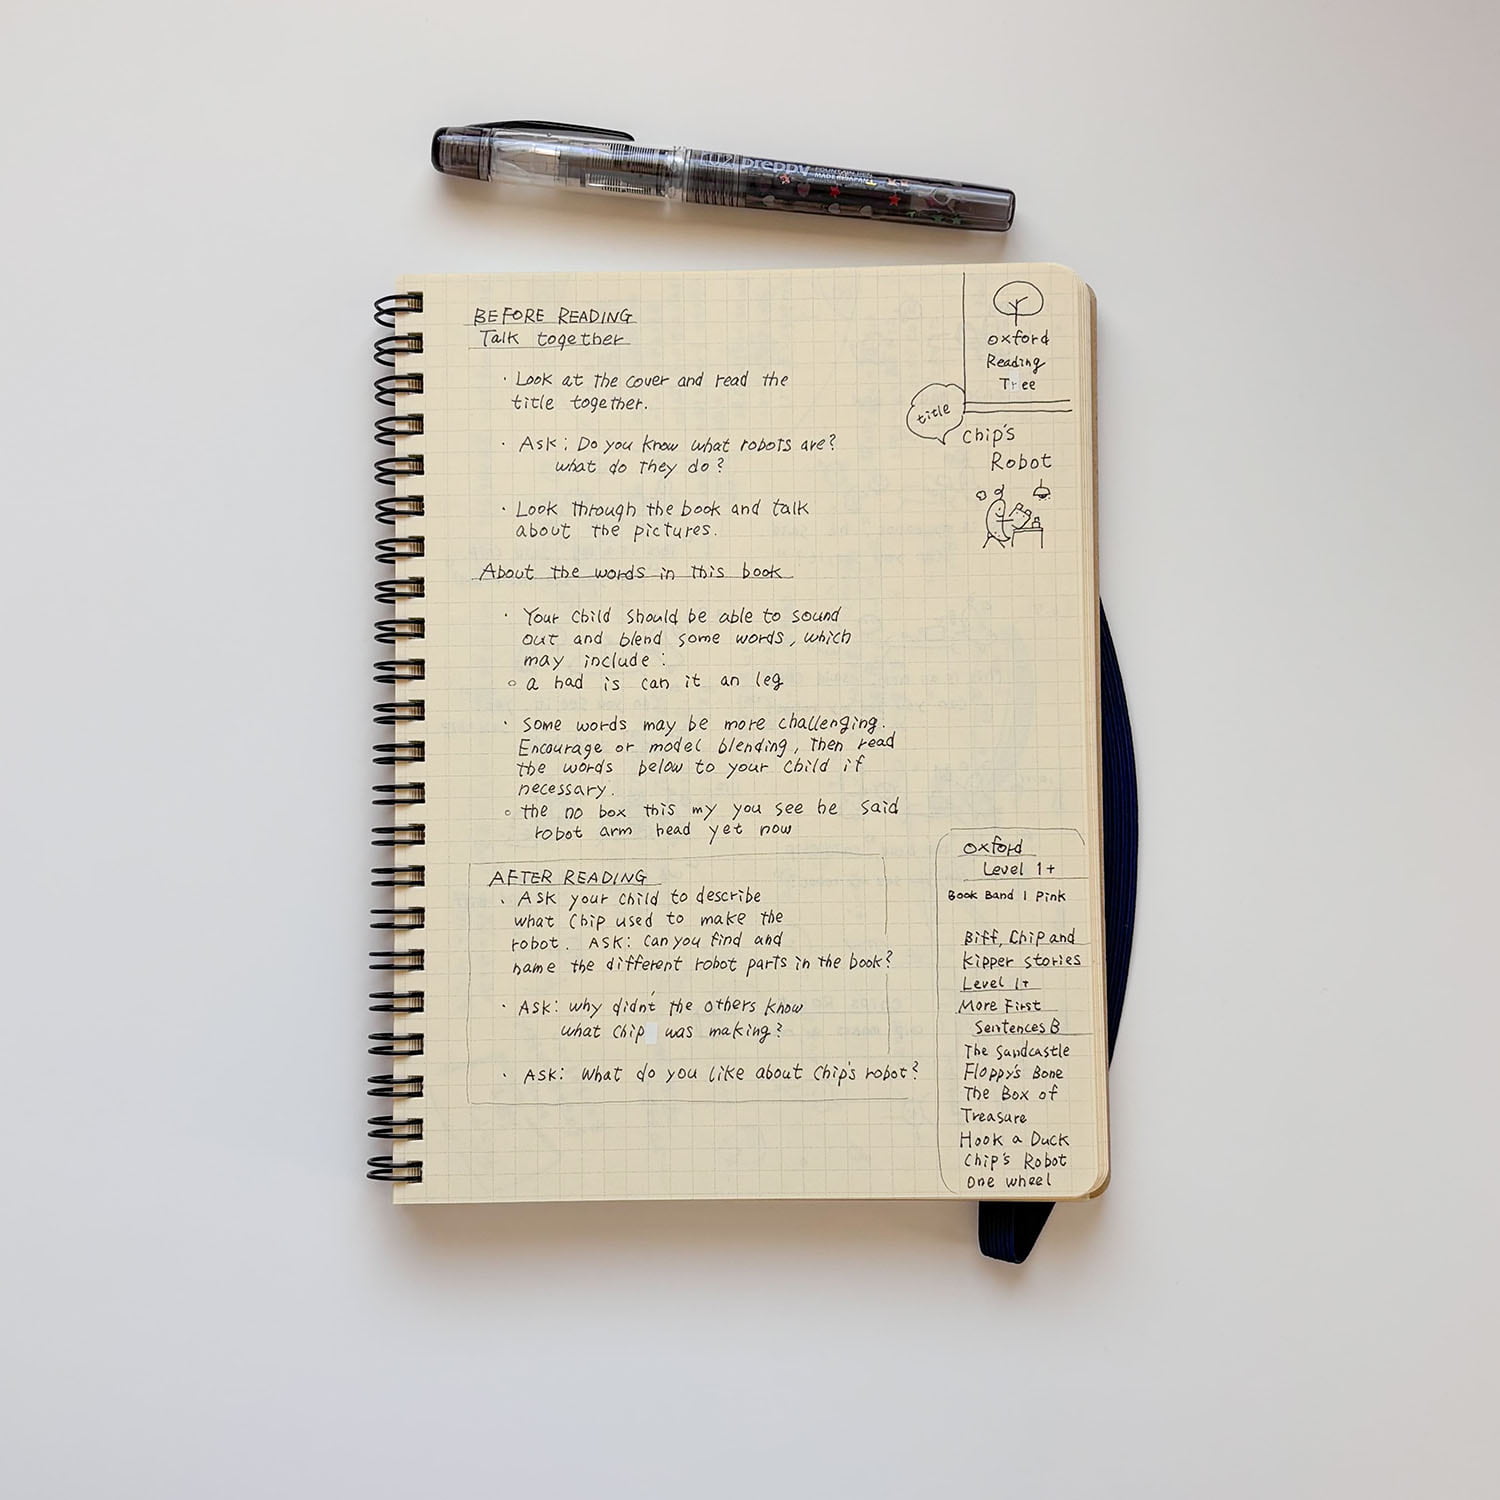 02 preppy FOUNTAIN PEN
MADE IN JAPAN
BEFORE READING
Talk together
· Look at the cover and read the
title together.
· Ask: Do you know what robots are?
what do they do?
· Look through the book and talk
about the pictures.
About the words in this book
· Your child should be able to sound
out and blend some words, which
may include:
○ a had is can it an leg
· Some words may be more challenging.
Encourage or model blending, then read
the words below to your child if
necessary.
○ the no box this my you see he said
robot arm head yet now
AFTER READING
· Ask your child to describe
what Chip used to make the
robot. ASK: Can you find and
name the different robot parts in the book?
· ASK: why didn't the others know
what Chip was making?
· ASK: What do you like about Chip's robot?
oxford
Reading
Tree
title
Chip's
Robot
oxford
Level 1+
Book Band 1 Pink
Biff, Chip and
Kipper stories
Level 1+
More First
Sentences B
The Sandcastle
Floppy's Bone
The Box of
Treasure
Hook a Duck
Chip's Robot
One wheel